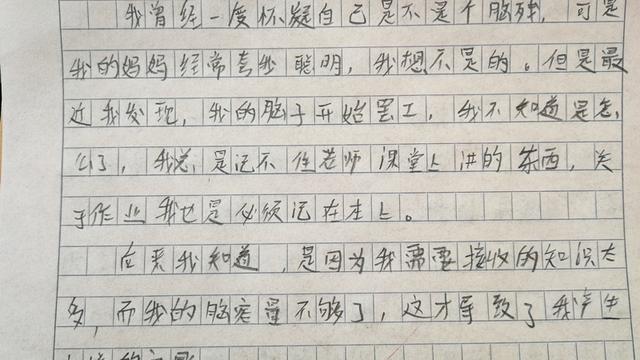 我曾经一度怀疑自己是不是个脑残，可是
我的妈妈经常夸我聪明，我想不是的。但是最
近我发现，我的脑子开始罢工，我不知道是怎
么了，我总是记不住老师课堂上讲的东西，关
于作业我也是必须记在本上。
后来我知道，是因为我需要接收的知识太
多，而我的脑容量不够了，这才导致了我产生